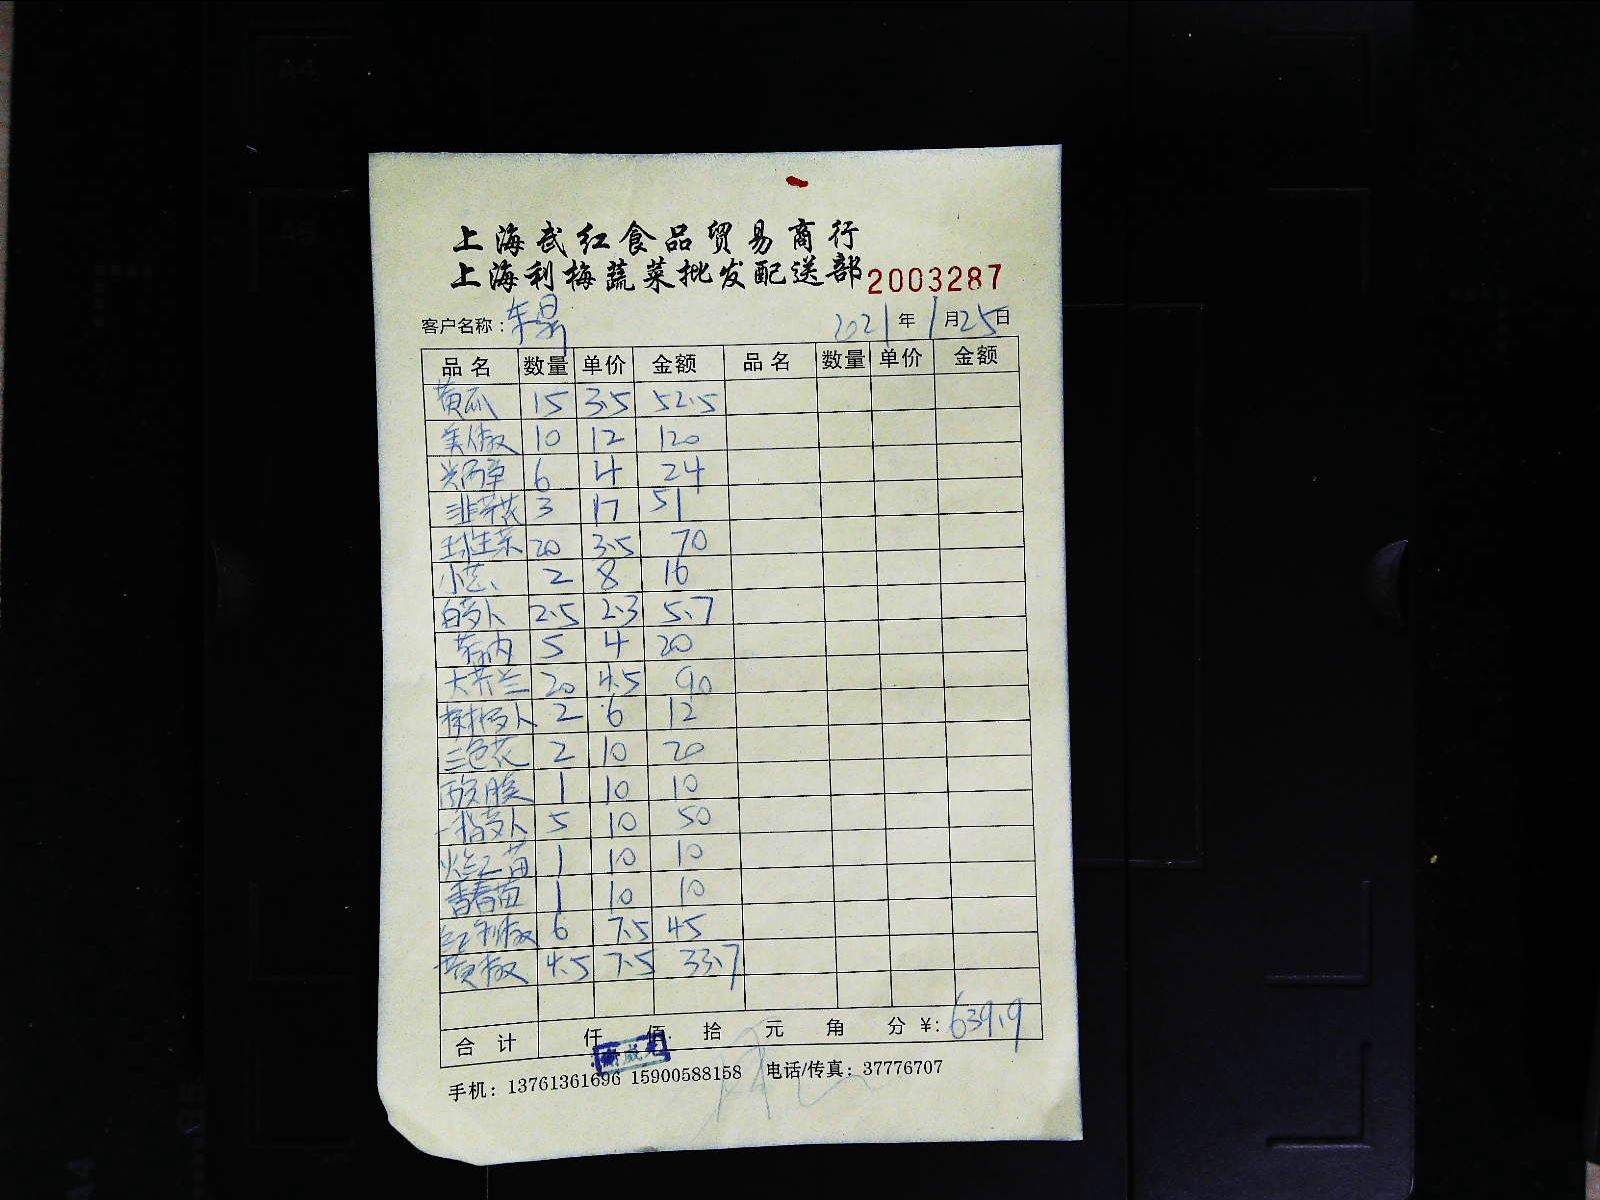 上海武红食品贸易商行
上海利梅蔬菜批发配送部 2003287
客户名称: 2021年1月25日
品名 数量 单价 金额 品名 数量 单价 金额
黄瓜 15 3.5 52.5
美人椒 10 12 120
6 4 24
韭菜花 3 17 51
球生菜 20 3.5 70
小芯、 2 8 16
白萝卜 2.5 2.3 5.7
5 4 20
大芥兰 20 4.5 90
樱桃萝卜 2 6 12
三色花 2 10 20
1 10 10
一指萝卜 5 10 50
1 10 10
香春苗 1 10 10
红圳椒 6 7.5 45
黄椒 4.5 7.5 33.7
合计 仟 佰 拾 元 角 分 ¥: 639.9
手机: 13761361696 15900588158 电话/传真: 37776707